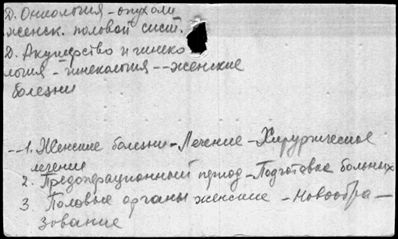 Д. Онкология - опухоли
женск. половой сист.
Д. Акушерство и гинеко
логия - гинекология -- женские
болезни
--1. Женские болезни - Лечение - Хирургическое
лечение
2. Предоперационный период - Подготовка больных
3. Половые органы женские - Новообра-
зование